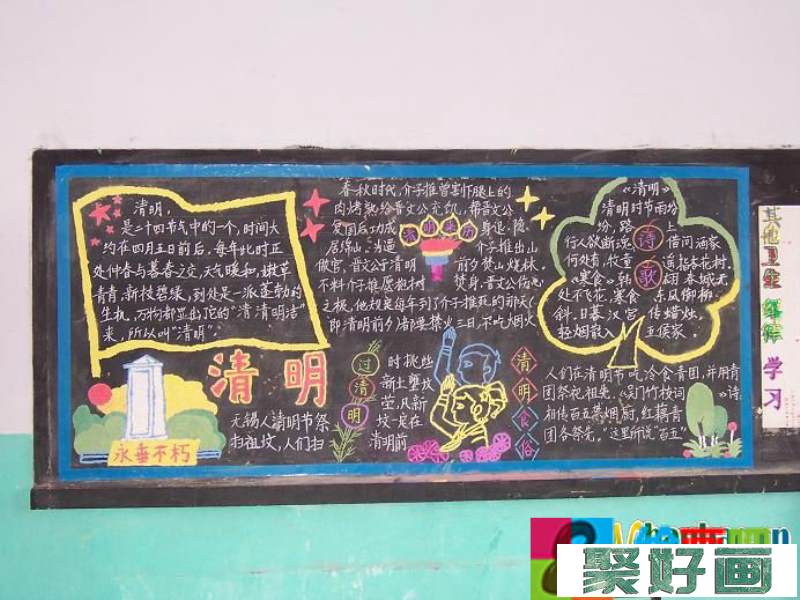 清明,
是二十四节气中的一个,时间大
约在四月五日前后,每年此时正
处仲春与暮春之交,天气暖和,嫩草
青青,新枝碧绿,到处是一派蓬勃的
生机,万物都显出花的“清清明洁”
来,所以叫“清明”。
清明
永垂不朽
春秋时代,介子推曾割下腿上的
肉烤熟给晋文公充饥,帮晋文公
复国后功成身退,隐
居绵山,
介子推出山
做官,晋文公于清明前夕焚山烧林,
不料介子推愿抱树焚身,晋文公
即清明前夕诸
禁火三日,不吃烟火
清明来历
过清明
无锡人清明节祭
扫祖坟,人们扫
时挑些
新土壅坟
茔,凡新
坟一定在
清明前
清明食俗
《清明》
清明时节雨纷
纷,路上
行人欲断魂,借问酒家
何处有,牧童遥指杏花村。
《寒食》韩翃 春城无
处不飞花,寒食东风御柳
斜,日暮汉宫传蜡烛,
轻烟散入五侯家.
诗歌
人们在清明节吃冷食青团,并用青
团祭祀祖先。《吴门竹枝词》诗
相传百五禁烟厨,红藕青
团各祭先,“这里所说“百五”
其他卫生
学习
聚好画